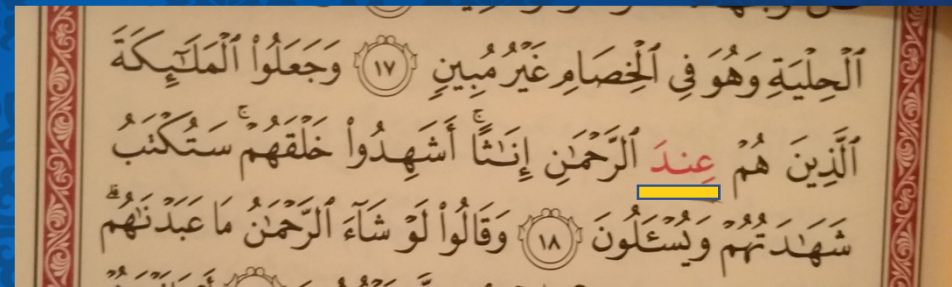 اَ۬لْحِلْيَةِ وَهُوَ فِي اِ۬لْخِصَامِ غَيْرُ مُبِينٍ ١٧ وَجَعَلُواْ اُ۬لْمَلَٰٓئِكَةَ
اَ۬لذِينَ هُمْ عِندَ اَ۬لرَّحْمَٰنِ إِنَٰثاًۚ أَشَهِدُواْ خَلْقَهُمْۚ سَتُكْتَبُ
شَهَٰدَتُهُمْ وَيُسْـَٔلُونَ ١٨ وَقَالُواْ لَوْ شَآءَ اَ۬لرَّحْمَٰنُ مَا عَبَدْنَٰهُمۗ